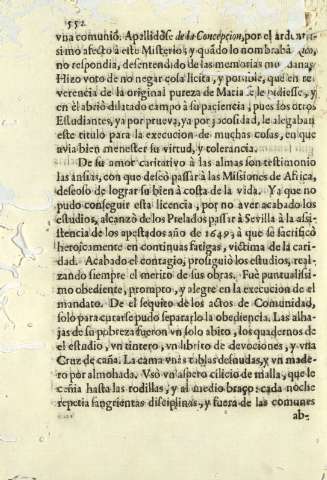 552.
vna comunió. Apellidóse de la Concepcion, por el ardentis-
simo afecto à este Misterio; y quãdo lo nombrabã
no respondia, desentendido de las memorias mundanas.
Hizo voto de no negar cosa licita, y possible, que en re-
verencia de la original pureza de Maria se le pidiesse, y
en èl abriò dilatado campo à su paciencia, pues los otros
Estudiantes, yà por prueva, yà por jocosidad, le alegaban
este titulo para la execucion de muchas cosas, en que
avia bien menester su virtud, y tolerancia.
De su amor caritativo à las almas son testimonio
las ansias, con que deseò passar à las Missiones de Africa,
deseoso de lograr su bien à costa de la vida. Ya que no
pudo conseguir esta licencia, por no aver acabado los
estudios, alcanzò de los Prelados passar à Sevilla à la assis-
tencia de los apestados año de 1649, à que se sacrificò
heroicamente en continuas fatigas, victima de la cari-
dad. Acabado el contagio, prosiguiò los estudios, real-
zando siempre el merito de sus obras. Fue puntualissi-
mo obediente, prompto, y alegre en la execucion de el
mandato. De el sequito de los actos de Comunidad,
solo para curarse pudo separarlo la obediencia. Las alha-
jas de su pobreza fueron vn solo abito, los quadernos de
el estudio, vn tintero, vn librito de devociones, y vna
Cruz de caña. La cama vnas tablas desnudas, y vn made-
ro por almohada. Vsò vn aspero cilicio de malla, que le
ceñia hasta las rodillas, y al medio braço: cada noche
repetia sangrientas disciplinas, y fuera de las comunes
ab-